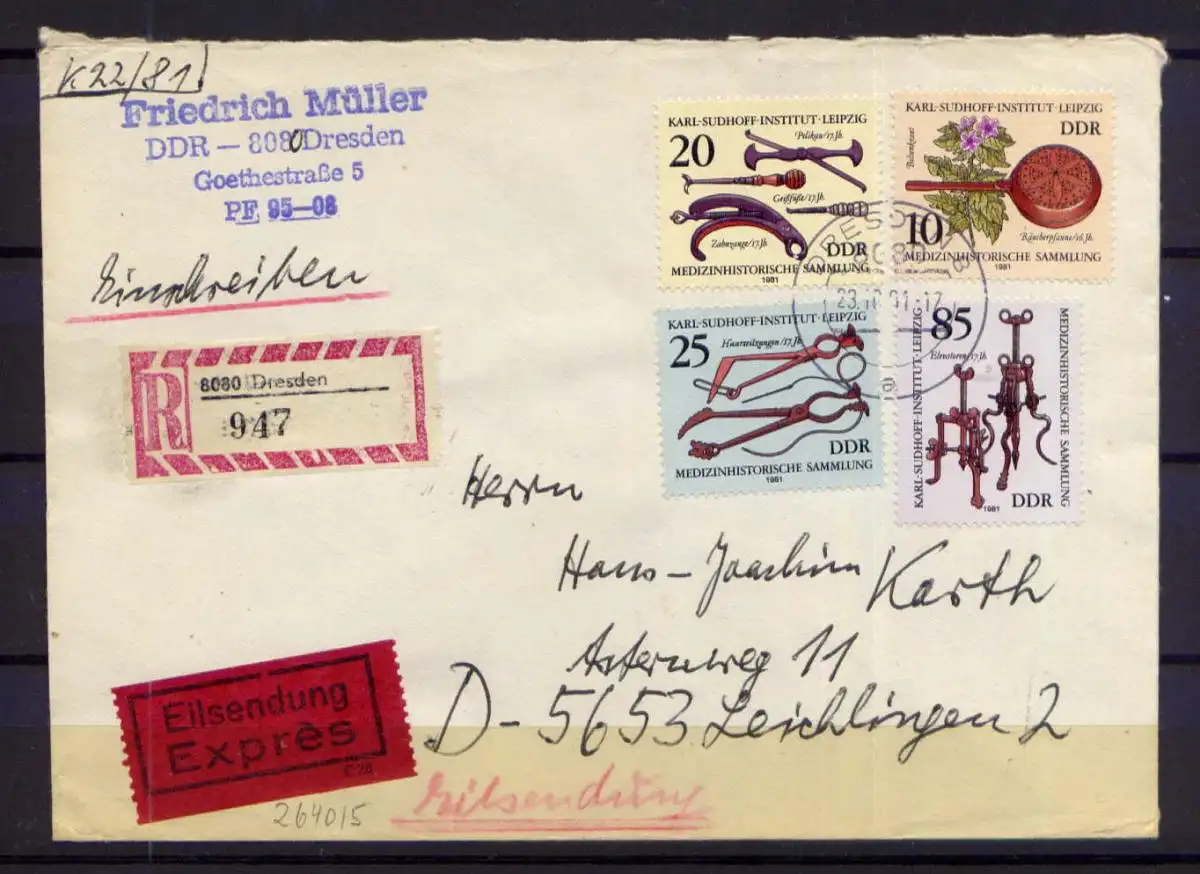 K22/81
Friedrich Müller
DDR – 8080 Dresden
Goethestraße 5
PF 95–08
Einschreiben
R
8080 Dresden
947
KARL-SUDHOFF-INSTITUT·LEIPZIG
20
Pelikan/17.Jh.
Geißfüße/17.Jh.
Zahnzange/17.Jh.
DDR
MEDIZINHISTORISCHE SAMMLUNG
1981
KARL-SUDHOFF-INSTITUT·LEIPZIG
DDR
Bilsenkraut
10
Räucherpfanne/16.Jh.
MEDIZINHISTORISCHE SAMMLUNG
1981
KARL-SUDHOFF-INSTITUT·LEIPZIG
25
Haarseilzangen/17.Jh.
DDR
MEDIZINHISTORISCHE SAMMLUNG
1981
KARL-SUDHOFF-INSTITUT·LEIPZIG
85
Elevatorien/17.Jh.
MEDIZINHISTORISCHE SAMMLUNG
1981
DDR
DRESDEN
8080
23.10.81-17
Herrn
Hans-Joachim Karth
Asternweg 11
D-5653 Leichlingen 2
Eilsendung
Exprès
C 26
Eilsendung
264015